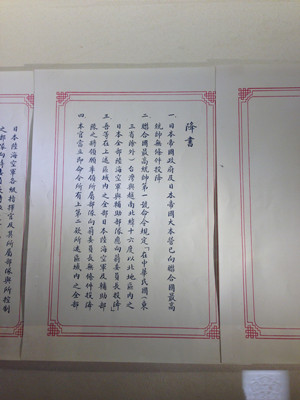 降書
一 日本帝國政府及日本帝國大本營已向聯合國最高
統帥無條件投降
二 聯合國最高統帥第一號命令規定「在中華民國(東
三省除外)台灣與越南北緯十六度以北地區內之
日本全部陸海空軍與輔助部隊應向蔣委員長投降」
三 吾等在上述區域內之全部日本陸海空軍及輔助部
隊之將領願率領所屬部隊向蔣委員長無條件投降
四 本官當立即命令所有上第二款所述區域內之全部
日本陸海空軍各級指揮官及其所屬部隊與所控制
之部隊向蔣委員長